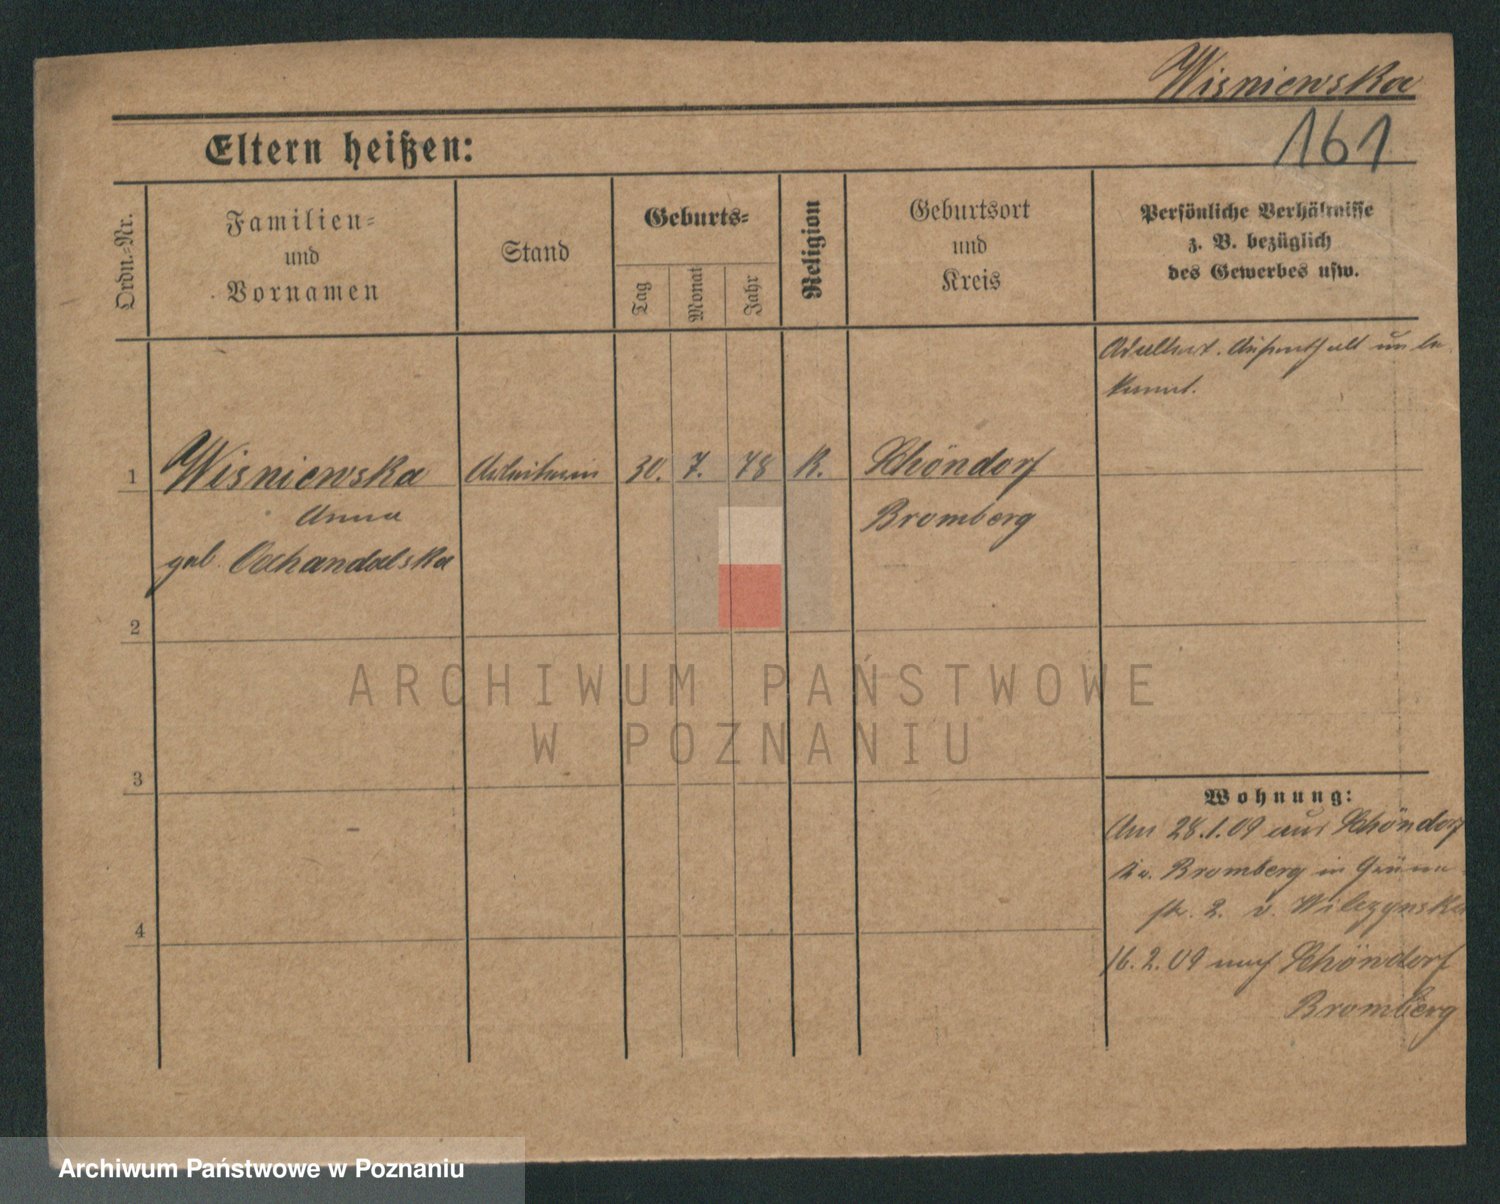 Wisniewska
161
Eltern heißen:
Ordn.-Nr.
Familien-
und
Vornamen
Stand
Geburts-
Tag
Monat
Jahr
Religion
Geburtsort
und
Kreis
Persönliche Verhältnisse
z. B. bezüglich
des Gewerbes usw.
Aufenthalt unbe
kannt.
1 Wisniewska Arbeiterin 30. 7. 78 K. Schöndorf
Anna Bromberg
geb.
2
3
Wohnung:
Am 28.1.09 aus Schöndorf
Kr. Bromberg in Grüne
str. 2. v. Wilczynska
4
16.2.09 nach Schöndorf
Bromberg
ARCHIWUM PAŃSTWOWE
W POZNANIU
Archiwum Państwowe w Poznaniu